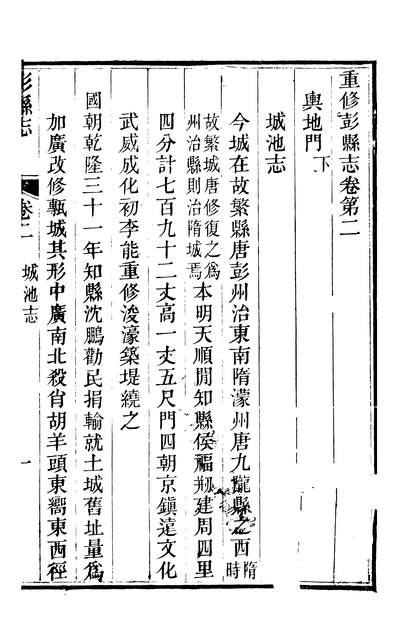 重修彭縣志卷第二
輿地門下
城池志
今城在故繁縣唐彭州治東南隋濛州唐九隴縣之西隋時
故繁城唐修復之為
州治縣則治隋城焉
本明天順閒知縣侯福剏建周四里
四分計七百九十二丈高一丈五尺門四朝京鎮遠文化
武威成化初李能重修浚濠築堤繞之
國朝乾隆三十一年知縣沈鵬勸民捐輸就土城舊址量為
加廣改修甎城其形中廣南北殺肖胡羊頭東嚮東西徑
彭縣志
卷二
城池志
一